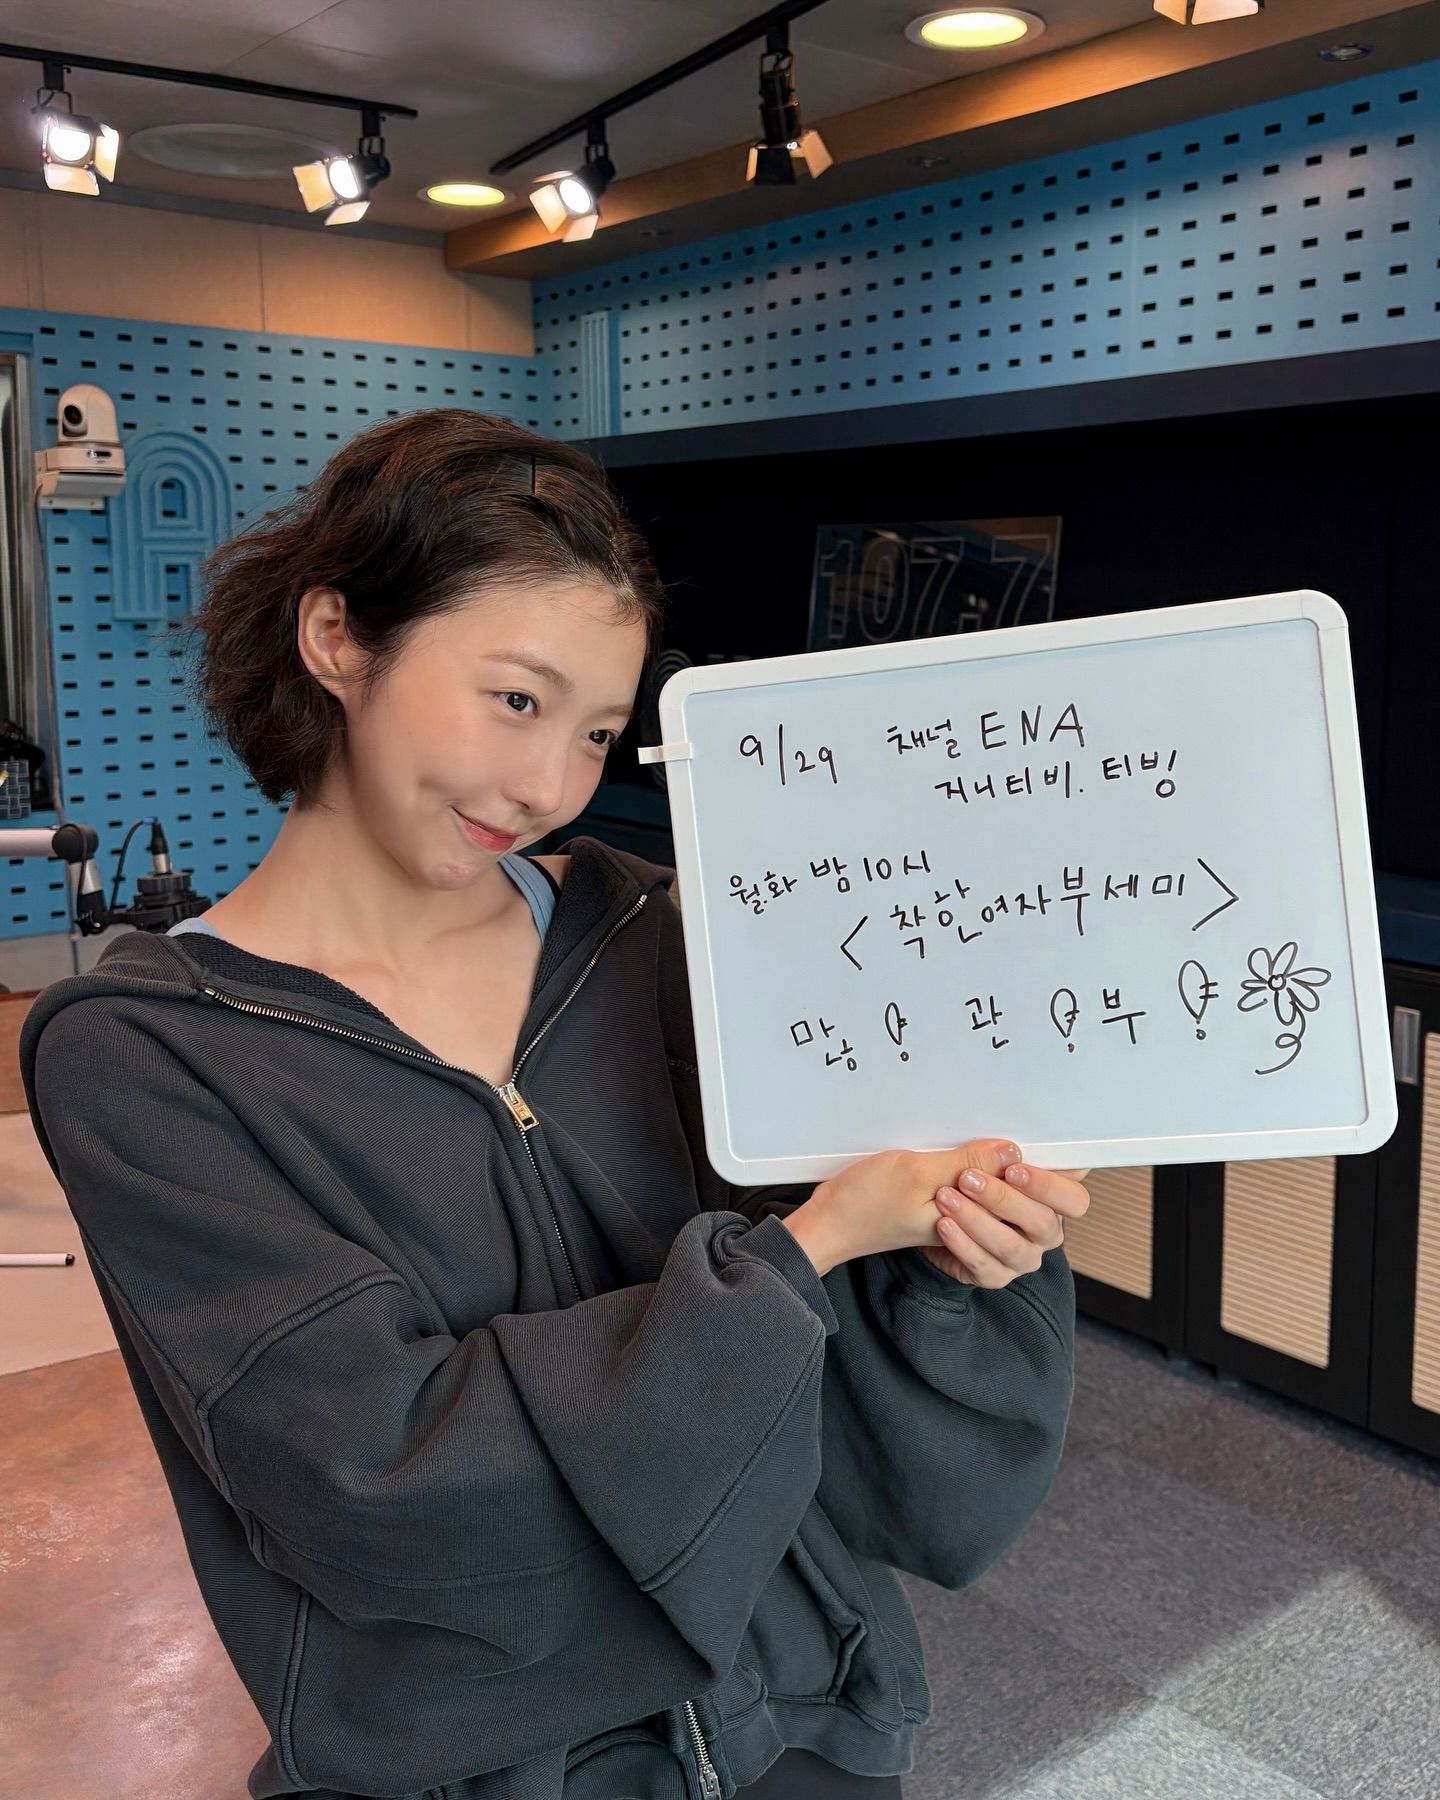 107.7
9/29 채널 ENA
지니티비. 티빙
월.화 밤 10시
<착한여자부세미>
많.관.부